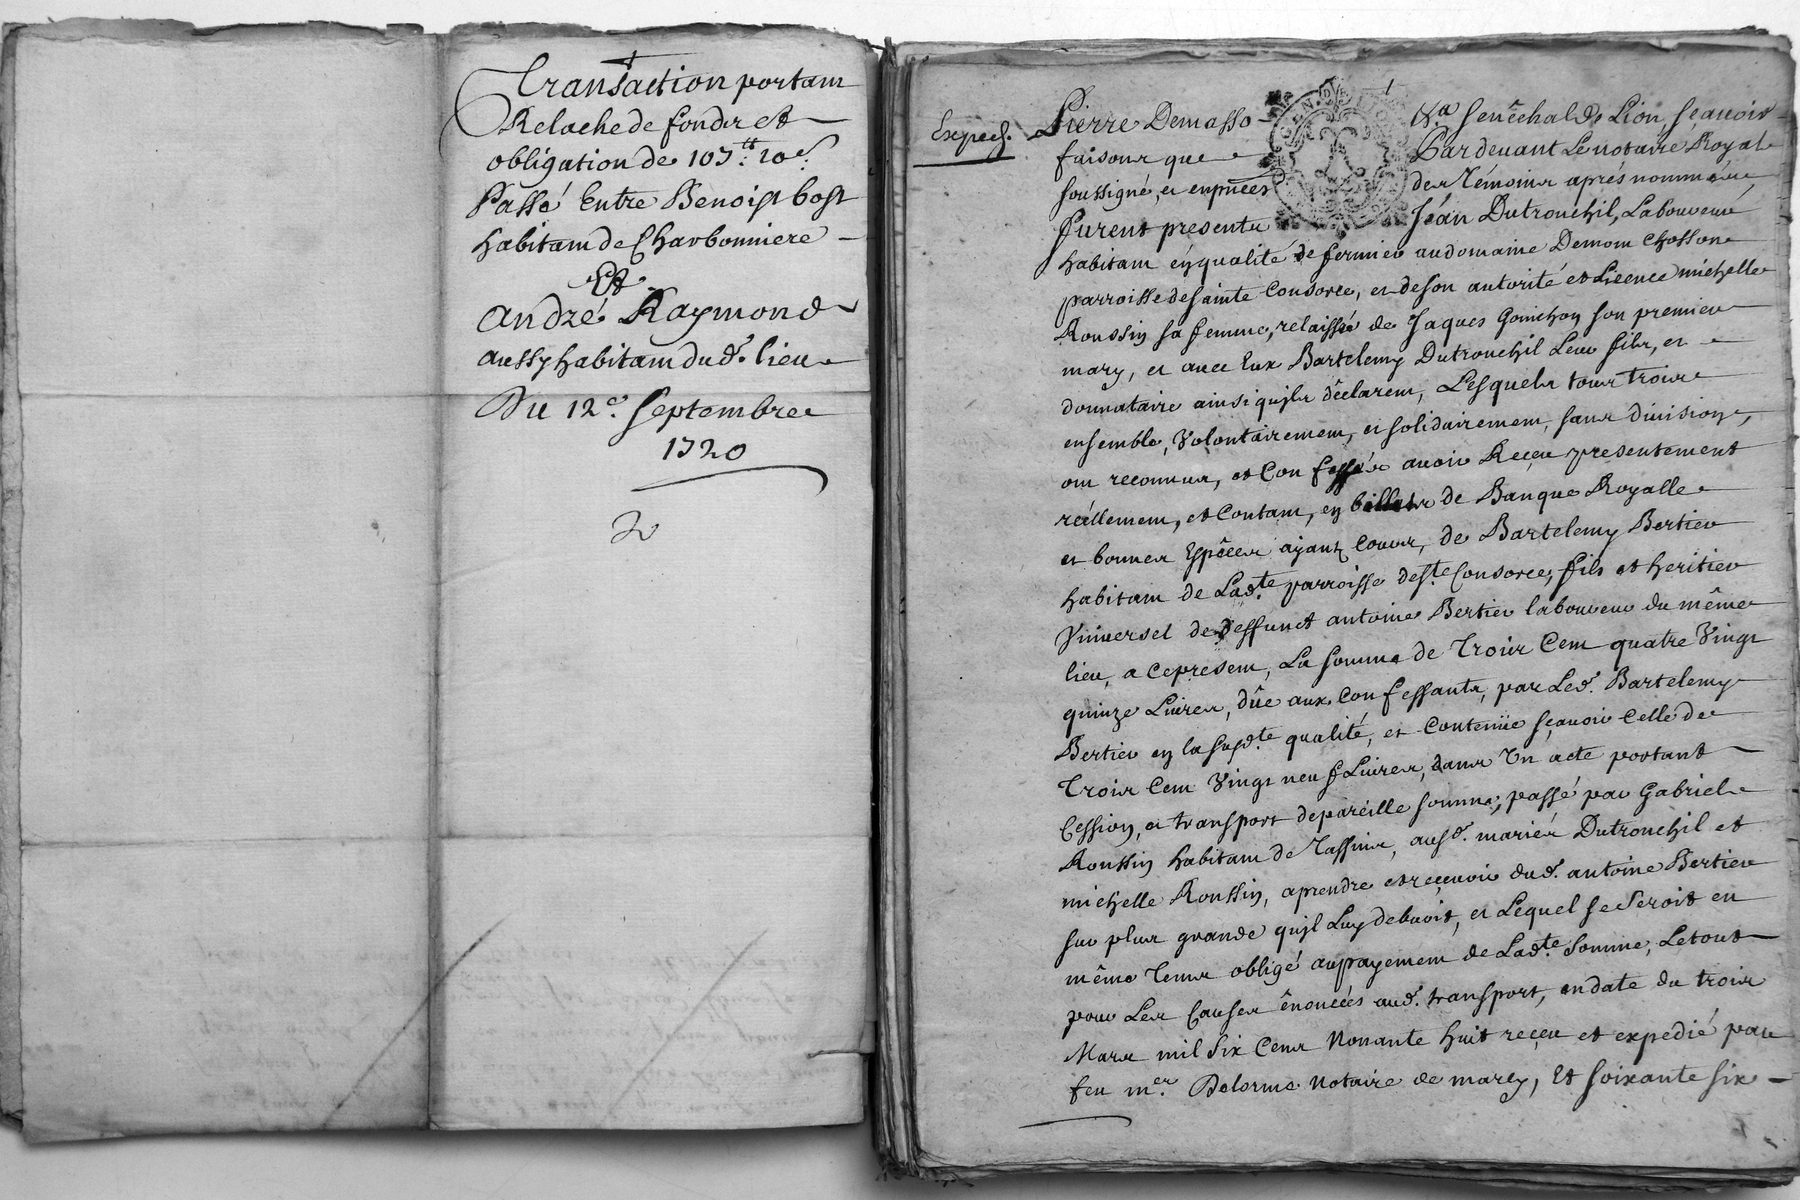 Transaction portant
Relache de fonds et
obligation de 105.tt 10.s
Passé Entre Benoist bost
habitant de Charbonniere
Et
andré Raymond
aussy habitant dud. lieu
Du 12e. Septembre
1720
Exped.
Pierre Demasso Sénêchal de Lion, scavoir
faisons que Pardevant Le notaire Royal
soussigné, et en pnces des témoins aprés nommés,
furent presents Jean Dutronchil, Laboureur
habitant en qualité de fermier au domaine Demom Chosson
parroisse de sainte Consorce, et de son autorité et Licence michelle
Roussin sa femme, relaissée de Jaques Goinchon son premier
mary, et avec Eux Bartelemy Dutronchil Leur fils, et
donnataire ainsi qu'ils dêclarent, Lesquels tous trois
ensemble, Volontairement, et solidairement, sans division,
ont reconnus, et Confessés avoir Reçeu presentement
réellement, et Contant, en billets de Banque Royalle
et bonnes Espêces ajant Cours, de Bartelemy Bertier
habitant de Lad.te parroisse de S.te Consorce, fils et heritier
Universel de deffunct antoine Bertier laboureur du même
lieu, a ce present, La somme de Trois Cent quatre Vingt
quinze Livres, dûe aux Confessants, par Led. Bartelemy
Bertier en la susd.te qualité, et Contenüe sçavoir Celle de
Trois Cent Vingt neuf Livres, dans Un acte portant
Cession, et transport de pareille somme, passé par Gabriel
Roussin habitant de Tassins, ausd. mariés Dutronchil et
michelle Roussin, a prendre et reçevoir dud. antoine Bertier
sur plus grande qu'jl Luy debvoit, et Lequel se Seroit en
même Tems obligé au payement de Lad.te Somme, Le tout
pour Les Causes ênoncées aud. transport, en date du trois
Mars mil Six Cens Nonante huit reçeu et expedié par
feu m.er Delorme Notaire de marcy, Et soixante six